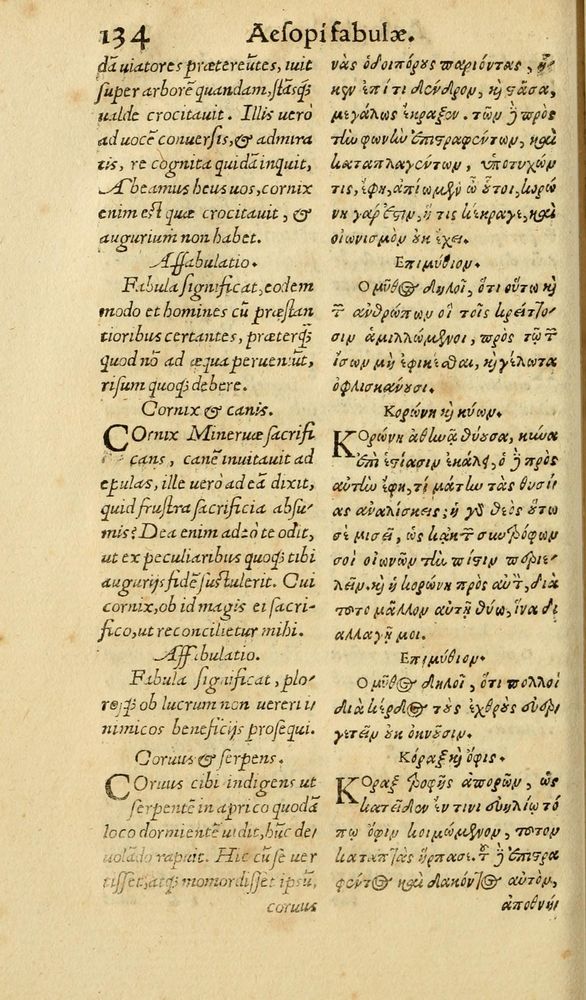 134 Aesopi fabulæ.
dã uiatores prætereũtes, iuit
super arborẽ quandam, stãsq́;
ualde crocitauit. Illis uerò
ad uocẽ conuersis, & admira
tis, re cognita quidã inquit,
Abeamus heus uos, cornix
enim est quæ crocitauit, &
augurium non habet.
Affabulatio.
Fabula significat, eodem
modo et homines cũ præstan
tioribus certantes, præterq́;
quod nõ ad æqua perueniũt,
risum quoq; debere.
Cornix & canis.
COrnix Mineruæ sacrifi
cans, canẽ inuitauit ad
epulas, ille uerò ad eã dixit,
quid frustra sacrificia absu-
mis? Dea enim adeò te odit,
ut ex peculiaribus quoq; tibi
augurijs fidẽ sustulerit. Cui
cornix, ob id magis ei sacri-
fico, ut reconcilietur mihi.
Affabulatio.
Fabula significat, plo-
rosq́; ob lucrum non uereri i/
nimicos beneficijs prosequi.
Coruus & serpens.
COruus cibi indigens ut
serpentẽ in aprico quodã
loco dormientẽ uidit, hũc de/
uolãdo rapuit. Hic cũ se uer
tisset, atq; momordisset ipsũ,
coruus
νὰς ὁδοιπόρους παριόντας, ἧ-
κεν ἐπί τι δένδρον, καὶ στᾶσα,
μεγάλως ἔκραξεν. τῶν δὲ πρὸς
τὴν φωνὴν ἐπιστραφέντων, καὶ
καταπλαγέντων, ὑποτυχών
τις, ἔφη, ἀπίωμεν ὦ οὗτοι, κορώ
νη γάρ ἐστιν, ἥ τις κέκραγε, καὶ
οἰωνισμὸν οὐκ ἔχει.
Επιμύθιον.
Ο μῦθος δηλοῖ, ὅτι οὕτω καὶ
τῶν ἀνθρώπων οἱ τοῖς κρείττο-
σιν ἁμιλλώμενοι, πρὸς τῷ τῶν
ἴσων μὴ ἐφικέσθαι, καὶ γέλωτα
ὀφλισκάνουσι.
Κορώνη καὶ κύων.
ΚΟρώνη ἀθηνᾷ θύουσα, κύνα
ἐπὶ ἑστίασιν ἐκάλει, ὁ δὲ πρὸς
αὐτὴν ἔφη, τί μάτην τὰς θυσί
ας ἀναλίσκεις; ἡ γὰρ θεὸς οὕτω
σε μισεῖ, ὡς κἀκ τῶν συντρόφων
σοι οἰωνῶν τὴν πίστιν περιε-
λεῖν. καὶ ἡ κορώνη πρὸς αὐτὸν, διὰ
τοῦτο μᾶλλον αὐτῇ θύω, ἵνα δι
αλλαγῇ μοι.
Επιμύθιον.
Ο μῦθος δηλοῖ, ὅτι πολλοὶ
διὰ κέρδος τοὺς ἐχθροὺς εὐερ
γετεῖν οὐκ ὀκνοῦσιν.
Κόραξ καὶ ὄφις.
ΚΟραξ τροφῆς ἀπορῶν, ὡς
κατεῖδεν ἔν τινι εὐηλίῳ τό
πῳ ὄφιν κοιμώμενον, τοῦτον
καταπτὰς ἥρπασε. τοῦ δὲ ἐπιστρα
φέντος καὶ δακόντος αὐτὸν,
ἀποθνή/